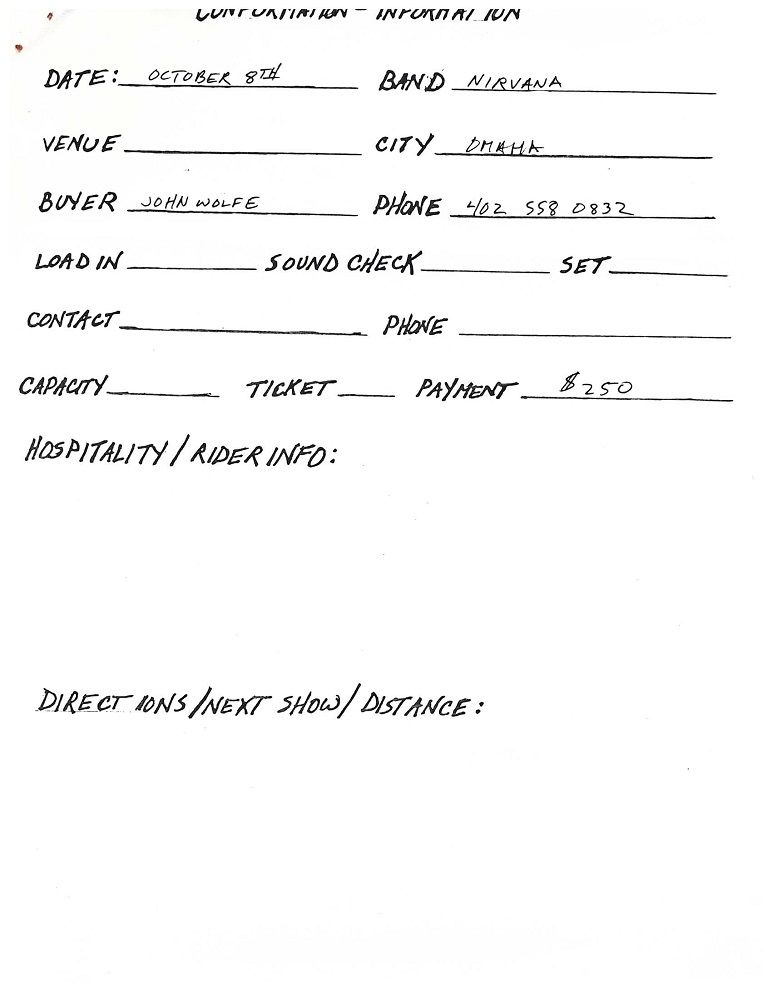 CONFORMATION - INFORMATION
DATE: OCTOBER 8TH BAND NIRVANA
VENUE CITY OMAHA
BUYER JOHN WOLFE PHONE 402 558 0832
LOAD IN SOUND CHECK SET
CONTACT PHONE
CAPACITY TICKET PAYMENT $250
HOSPITALITY / RIDER INFO:
DIRECTIONS / NEXT SHOW / DISTANCE: